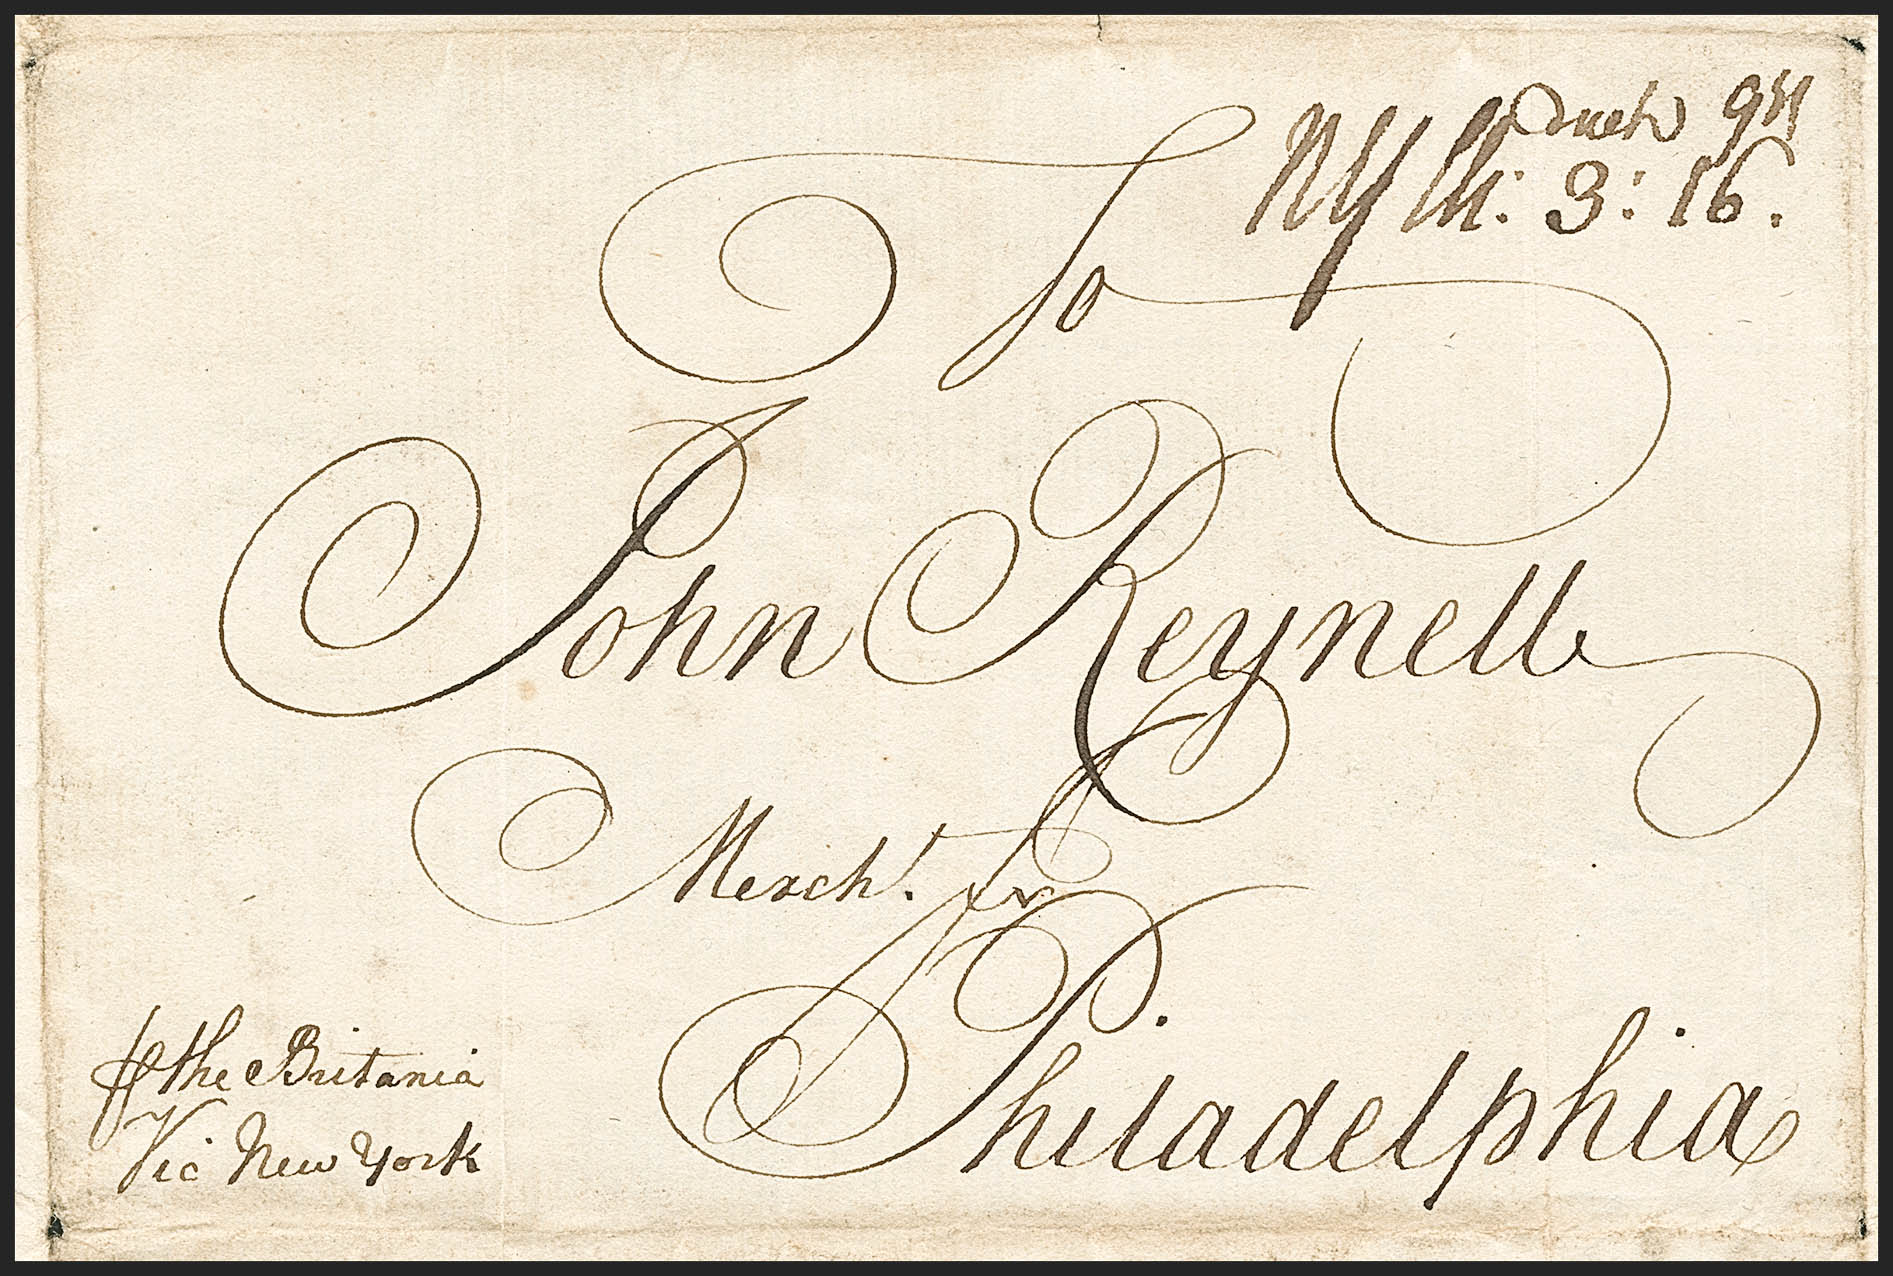 To
NY 3:16.
John Reynell
Mercht. in
Philadelphia
the Britania
Via New York